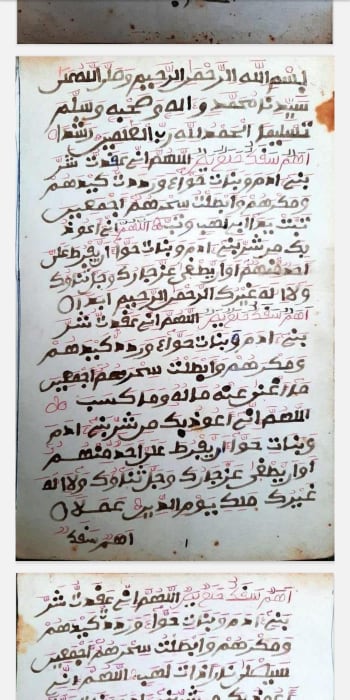 بسم الله الرحمن الرحيم وصلى الله على
سيدنا محمد وءاله وصحبه وسلم
تسليما الحمد لله رب العلمين
اللهم اني عقدت شر
بني ادم وبنات حواء ورددت كيدهم
ومكرهم وابطلت سحرهم اجمعين
تبت يدا ابي لهب وتب اللهم اني اعوذ
بك من شر بني ادم وبنات حواء ان يفرط علي
احد منهم او ان يطغى عز جارك وجل ثناؤك
ولا اله غيرك الرحمن الرحيم ابدا
اللهم اني عقدت شر
بني ادم وبنات حواء ورددت كيدهم
ومكرهم وابطلت سحرهم اجمعين
ما اغنى عنه ماله وما كسب
اللهم اني اعوذ بك من شر بني ادم
وبنات حواء ان يفرط علي احد منهم
او ان يطغى عز جارك وجل ثناؤك ولا اله
غيرك ملك يوم الدين
اهم سفك
اللهم اني عقدت شر
بني ادم وبنات حواء ورددت كيدهم
ومكرهم وابطلت سحرهم اجمعين
سيصلى نارا ذات لهب اللهم اني